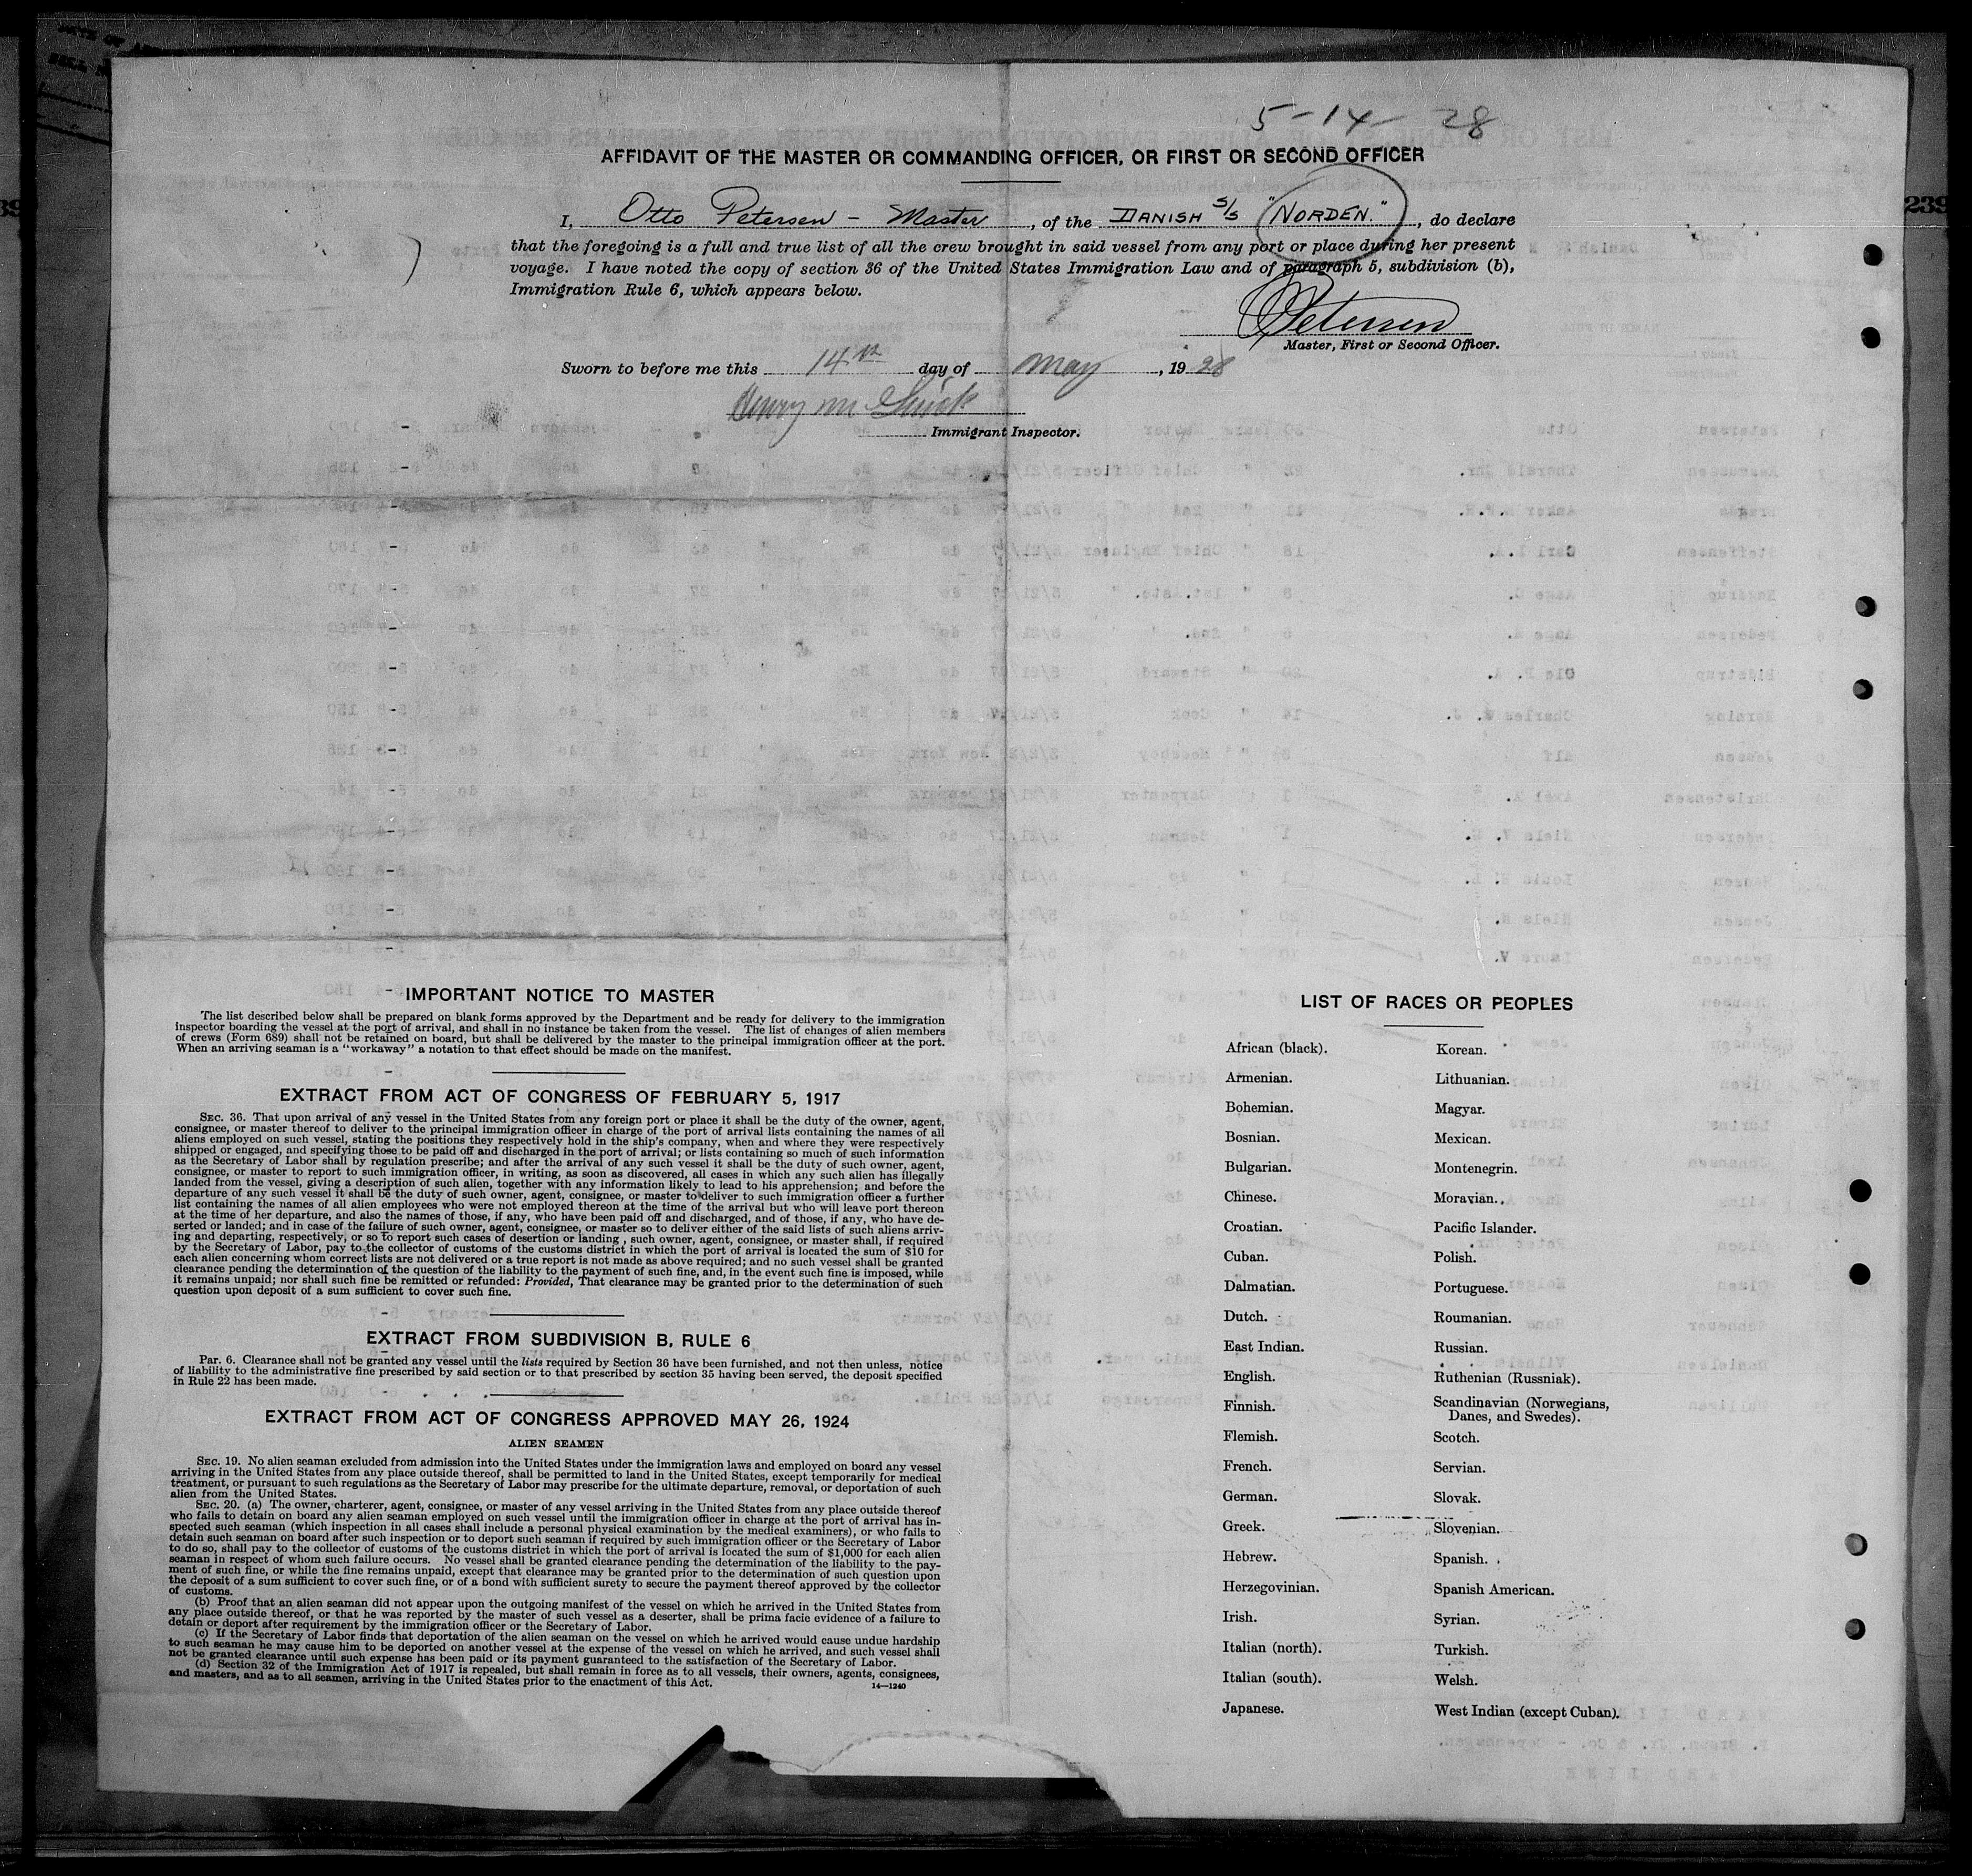 5-14- 28
AFFIDAVIT OF THE MASTER OR COMMANDING OFFICER, OR FIRST OR SECOND OFFICER
I, Otto Petersen - Master, of the DANISH S/S "NORDEN.", do declare
that the foregoing is a full and true list of all the crew brought in said vessel from any port or place during her present
voyage. I have noted the copy of section 36 of the United States Immigration Law and of paragraph 5, subdivision (b),
Immigration Rule 6, which appears below.
Petersen
Master, First or Second Officer.
Sworn to before me this 14th day of May, 1928
Henry
Immigrant Inspector.
239
IMPORTANT NOTICE TO MASTER
The list described below shall be prepared on blank forms approved by the Department and be ready for delivery to the immigration
inspector boarding the vessel at the port of arrival, and shall in no instance be taken from the vessel. The list of changes of alien members
of crews (Form 689) shall not be retained on board, but shall be delivered by the master to the principal immigration officer at the port.
When an arriving seaman is a "workaway" a notation to that effect should be made on the manifest.
EXTRACT FROM ACT OF CONGRESS OF FEBRUARY 5, 1917
SEC. 36. That upon arrival of any vessel in the United States from any foreign port or place it shall be the duty of the owner, agent,
consignee, or master thereof to deliver to the principal immigration officer in charge of the port of arrival lists containing the names of all
aliens employed on such vessel, stating the positions they respectively hold in the ship's company, when and where they were respectively
shipped or engaged, and specifying those to be paid off and discharged in the port of arrival; or lists containing so much of such information
as the Secretary of Labor shall by regulation prescribe; and after the arrival of any such vessel it shall be the duty of such owner, agent,
consignee, or master to report to such immigration officer, in writing, as soon as discovered, all cases in which any such alien has illegally
landed from the vessel, giving a description of such alien, together with any information likely to lead to his apprehension; and before the
departure of any such vessel it shall be the duty of such owner, agent, consignee, or master to deliver to such immigration officer a further
list containing the names of all alien employees who were not employed thereon at the time of the arrival but who will leave port thereon
at the time of her departure, and also the names of those, if any, who have been paid off and discharged, and of those, if any, who have de-
serted or landed; and in case of the failure of such owner, agent, consignee, or master so to deliver either of the said lists of such aliens arriv-
ing and departing, respectively, or so to report such cases of desertion or landing, such owner, agent, consignee, or master shall, if required
by the Secretary of Labor, pay to the collector of customs of the customs district in which the port of arrival is located the sum of $10 for
each alien concerning whom correct lists are not delivered or a true report is not made as above required; and no such vessel shall be granted
clearance pending the determination of the question of the liability to the payment of such fine, and, in the event such fine is imposed, while
it remains unpaid; nor shall such fine be remitted or refunded: Provided, That clearance may be granted prior to the determination of such
question upon deposit of a sum sufficient to cover such fine.
EXTRACT FROM SUBDIVISION B, RULE 6
Par. 6. Clearance shall not be granted any vessel until the lists required by Section 36 have been furnished, and not then unless, notice
of liability to the administrative fine prescribed by said section or to that prescribed by section 35 having been served, the deposit specified
in Rule 22 has been made.
EXTRACT FROM ACT OF CONGRESS APPROVED MAY 26, 1924
ALIEN SEAMEN
SEC. 19. No alien seaman excluded from admission into the United States under the immigration laws and employed on board any vessel
arriving in the United States from any place outside thereof, shall be permitted to land in the United States, except temporarily for medical
treatment, or pursuant to such regulations as the Secretary of Labor may prescribe for the ultimate departure, removal, or deportation of such
alien from the United States.
SEC. 20. (a) The owner, charterer, agent, consignee, or master of any vessel arriving in the United States from any place outside thereof
who fails to detain on board any alien seaman employed on such vessel until the immigration officer in charge at the port of arrival has in-
spected such seaman (which inspection in all cases shall include a personal physical examination by the medical examiners), or who fails to
detain such seaman on board after such inspection or to deport such seaman if required by such immigration officer or the Secretary of Labor
to do so, shall pay to the collector of customs of the customs district in which the port of arrival is located the sum of $1,000 for each alien
seaman in respect of whom such failure occurs. No vessel shall be granted clearance pending the determination of the liability to the pay-
ment of such fine, or while the fine remains unpaid, except that clearance may be granted prior to the determination of such question upon
the deposit of a sum sufficient to cover such fine, or of a bond with sufficient surety to secure the payment thereof approved by the collector
of customs.
(b) Proof that an alien seaman did not appear upon the outgoing manifest of the vessel on which he arrived in the United States from
any place outside thereof, or that he was reported by the master of such vessel as a deserter, shall be prima facie evidence of a failure to
detain or deport after requirement by the immigration officer or the Secretary of Labor.
(c) If the Secretary of Labor finds that deportation of the alien seaman on the vessel on which he arrived would cause undue hardship
to such seaman he may cause him to be deported on another vessel at the expense of the vessel on which he arrived, and such vessel shall
not be granted clearance until such expense has been paid or its payment guaranteed to the satisfaction of the Secretary of Labor.
(d) Section 32 of the Immigration Act of 1917 is repealed, but shall remain in force as to all vessels, their owners, agents, consignees,
and masters, and as to all seamen, arriving in the United States prior to the enactment of this Act.
14—1240
LIST OF RACES OR PEOPLES
African (black).
Armenian.
Bohemian.
Bosnian.
Bulgarian.
Chinese.
Croatian.
Cuban.
Dalmatian.
Dutch.
East Indian.
English.
Finnish.
Flemish.
French.
German.
Greek.
Hebrew.
Herzegovinian.
Irish.
Italian (north).
Italian (south).
Japanese.
Korean.
Lithuanian.
Magyar.
Mexican.
Montenegrin.
Moravian.
Pacific Islander.
Polish.
Portuguese.
Roumanian.
Russian.
Ruthenian (Russniak).
Scandinavian (Norwegians,
Danes, and Swedes).
Scotch.
Servian.
Slovak.
Slovenian.
Spanish.
Spanish American.
Syrian.
Turkish.
Welsh.
West Indian (except Cuban).